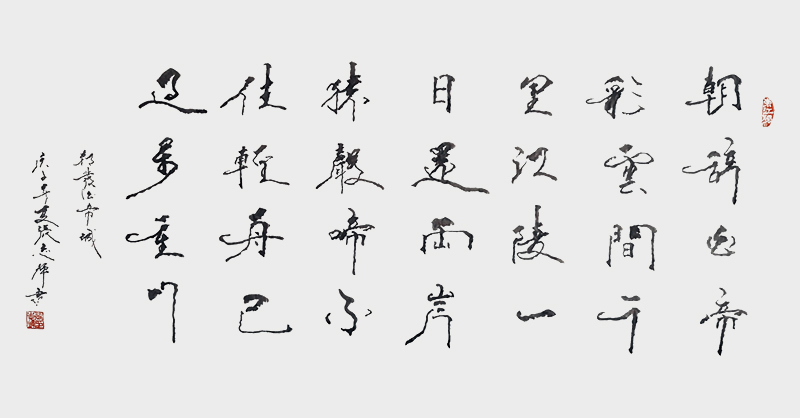 朝辞白帝
彩雲間千
里江陵一
日還兩岸
猿聲啼不
住輕舟已
過萬重山
發白帝城
庚子年夏張志書